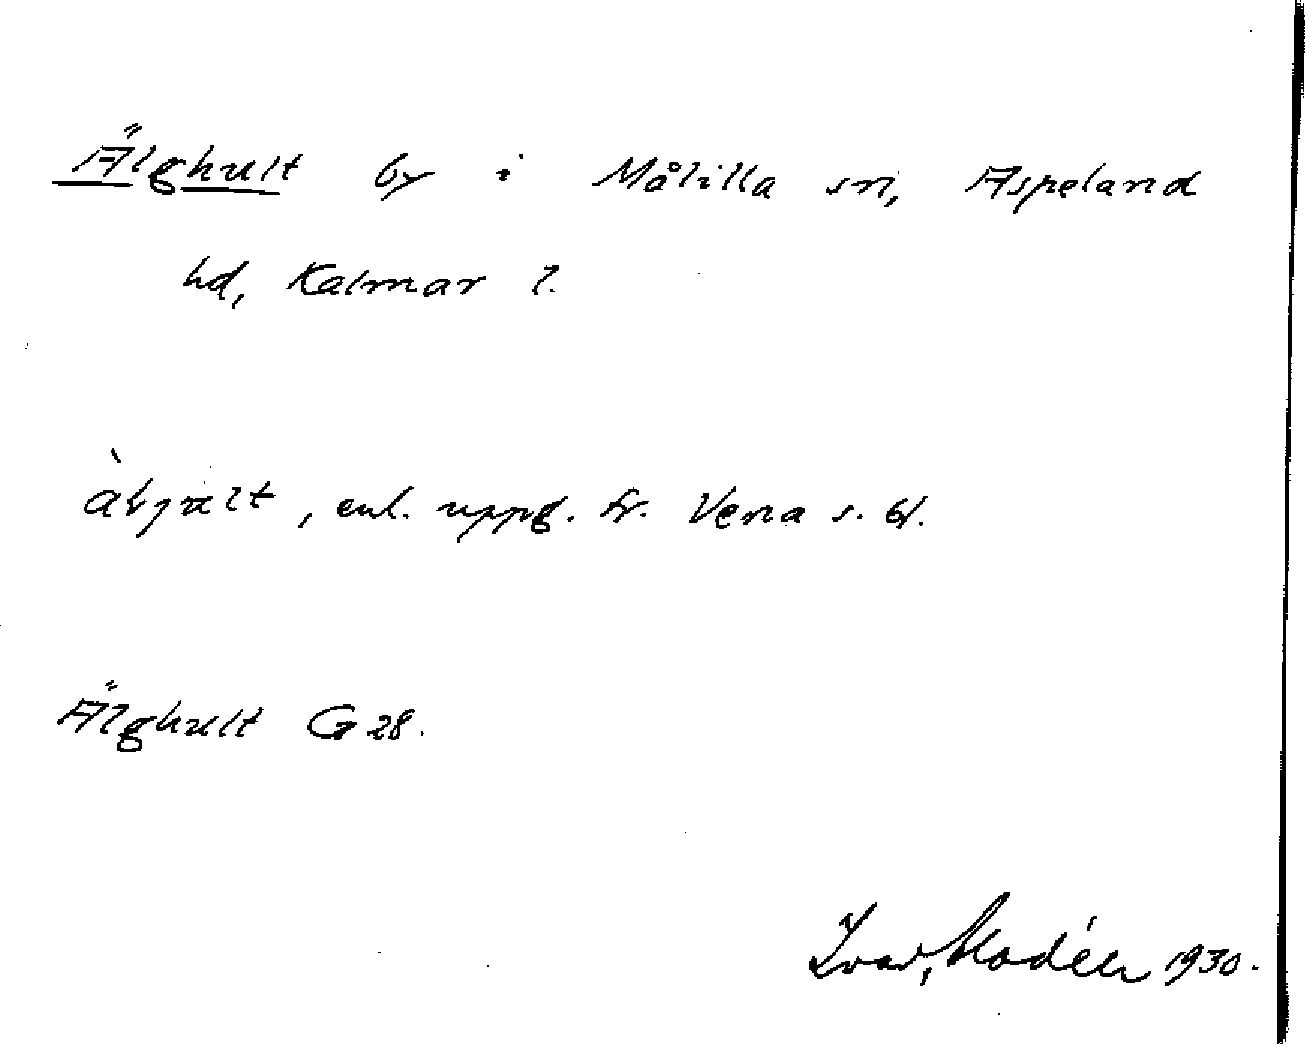 Älghult by i Målilla sn, Aspeland
hd, Kalmar l.
enl. uppg. fr. Vena s. bl.
Älghult G 28.
Ivar Modéer 1930.